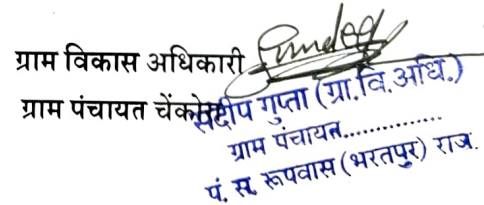 ग्राम विकास अधिकारी
ग्राम पंचायत
संदीप गुप्ता (ग्रा.वि.अधि.)
ग्राम पंचायत..............
पं. स. रूपवास (भरतपुर) राज.